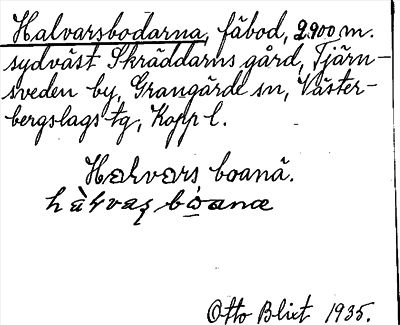 Halvarsbodarna, fäbod, 2.900 m.
sydväst Skräddarns gård, Tjärn-
sveden by, Grangärde sn, Väster-
bergslags tg, Kopp l.
Halvars boanä.
Otto Blixt 1935.